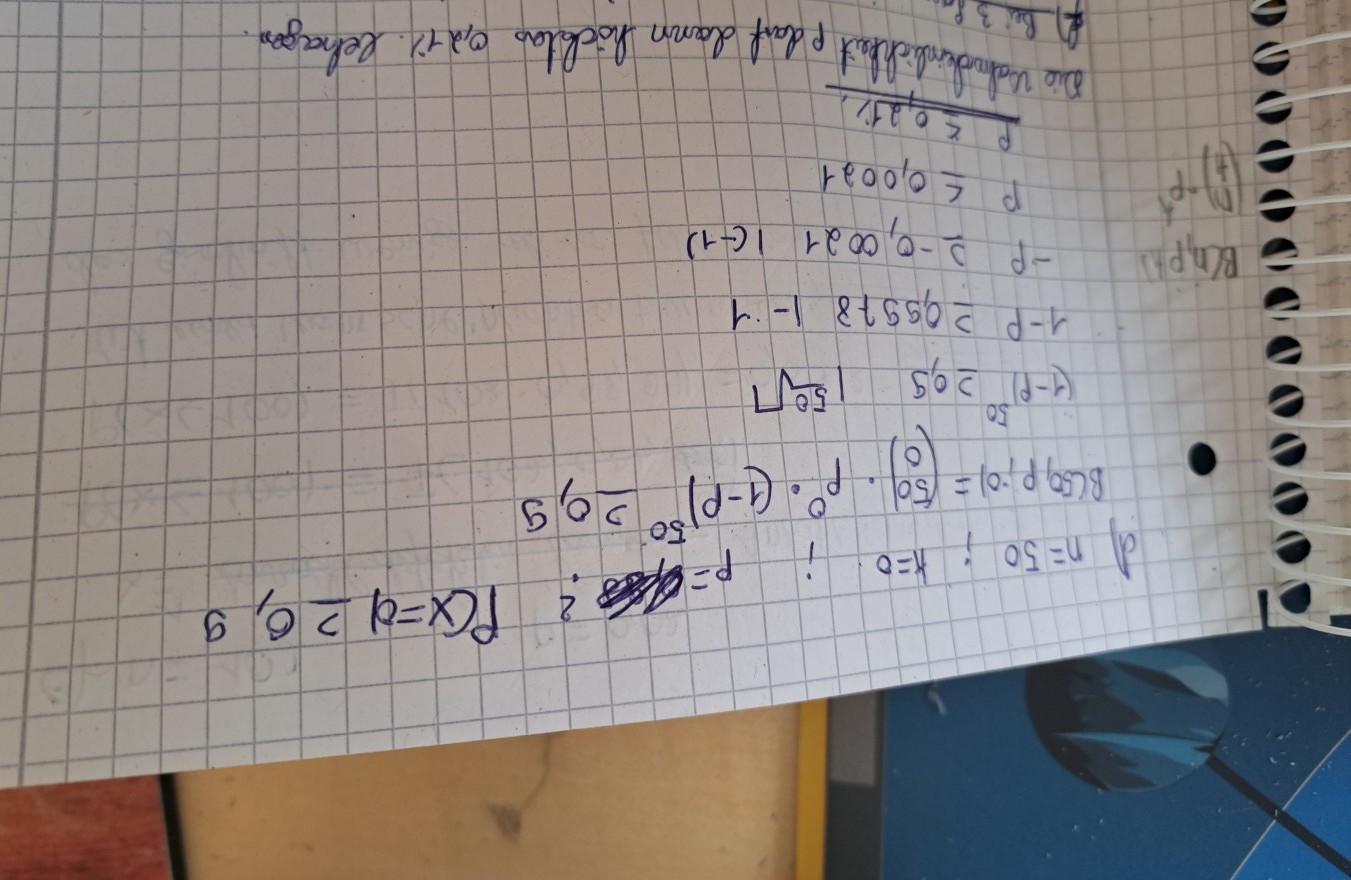 d) n=50 ; k=0 ; p= ? P(X=0) ≥ 0,9
B(50, p, 0) = (50 0) · p⁰ · (1-p)⁵⁰ ≥ 0,9
(1-p)⁵⁰ ≥ 0,9 | ⁵⁰√
1-p ≥ 0,9978 |-1
-p ≥ -0,0021 |(-1)
p ≤ 0,0021
p ≤ 0,21%
Die Wahrscheinlichkeit p darf dann höchstens 0,21% betragen.
Bei 3
B(n, p, k)
(n k) · pᵏ